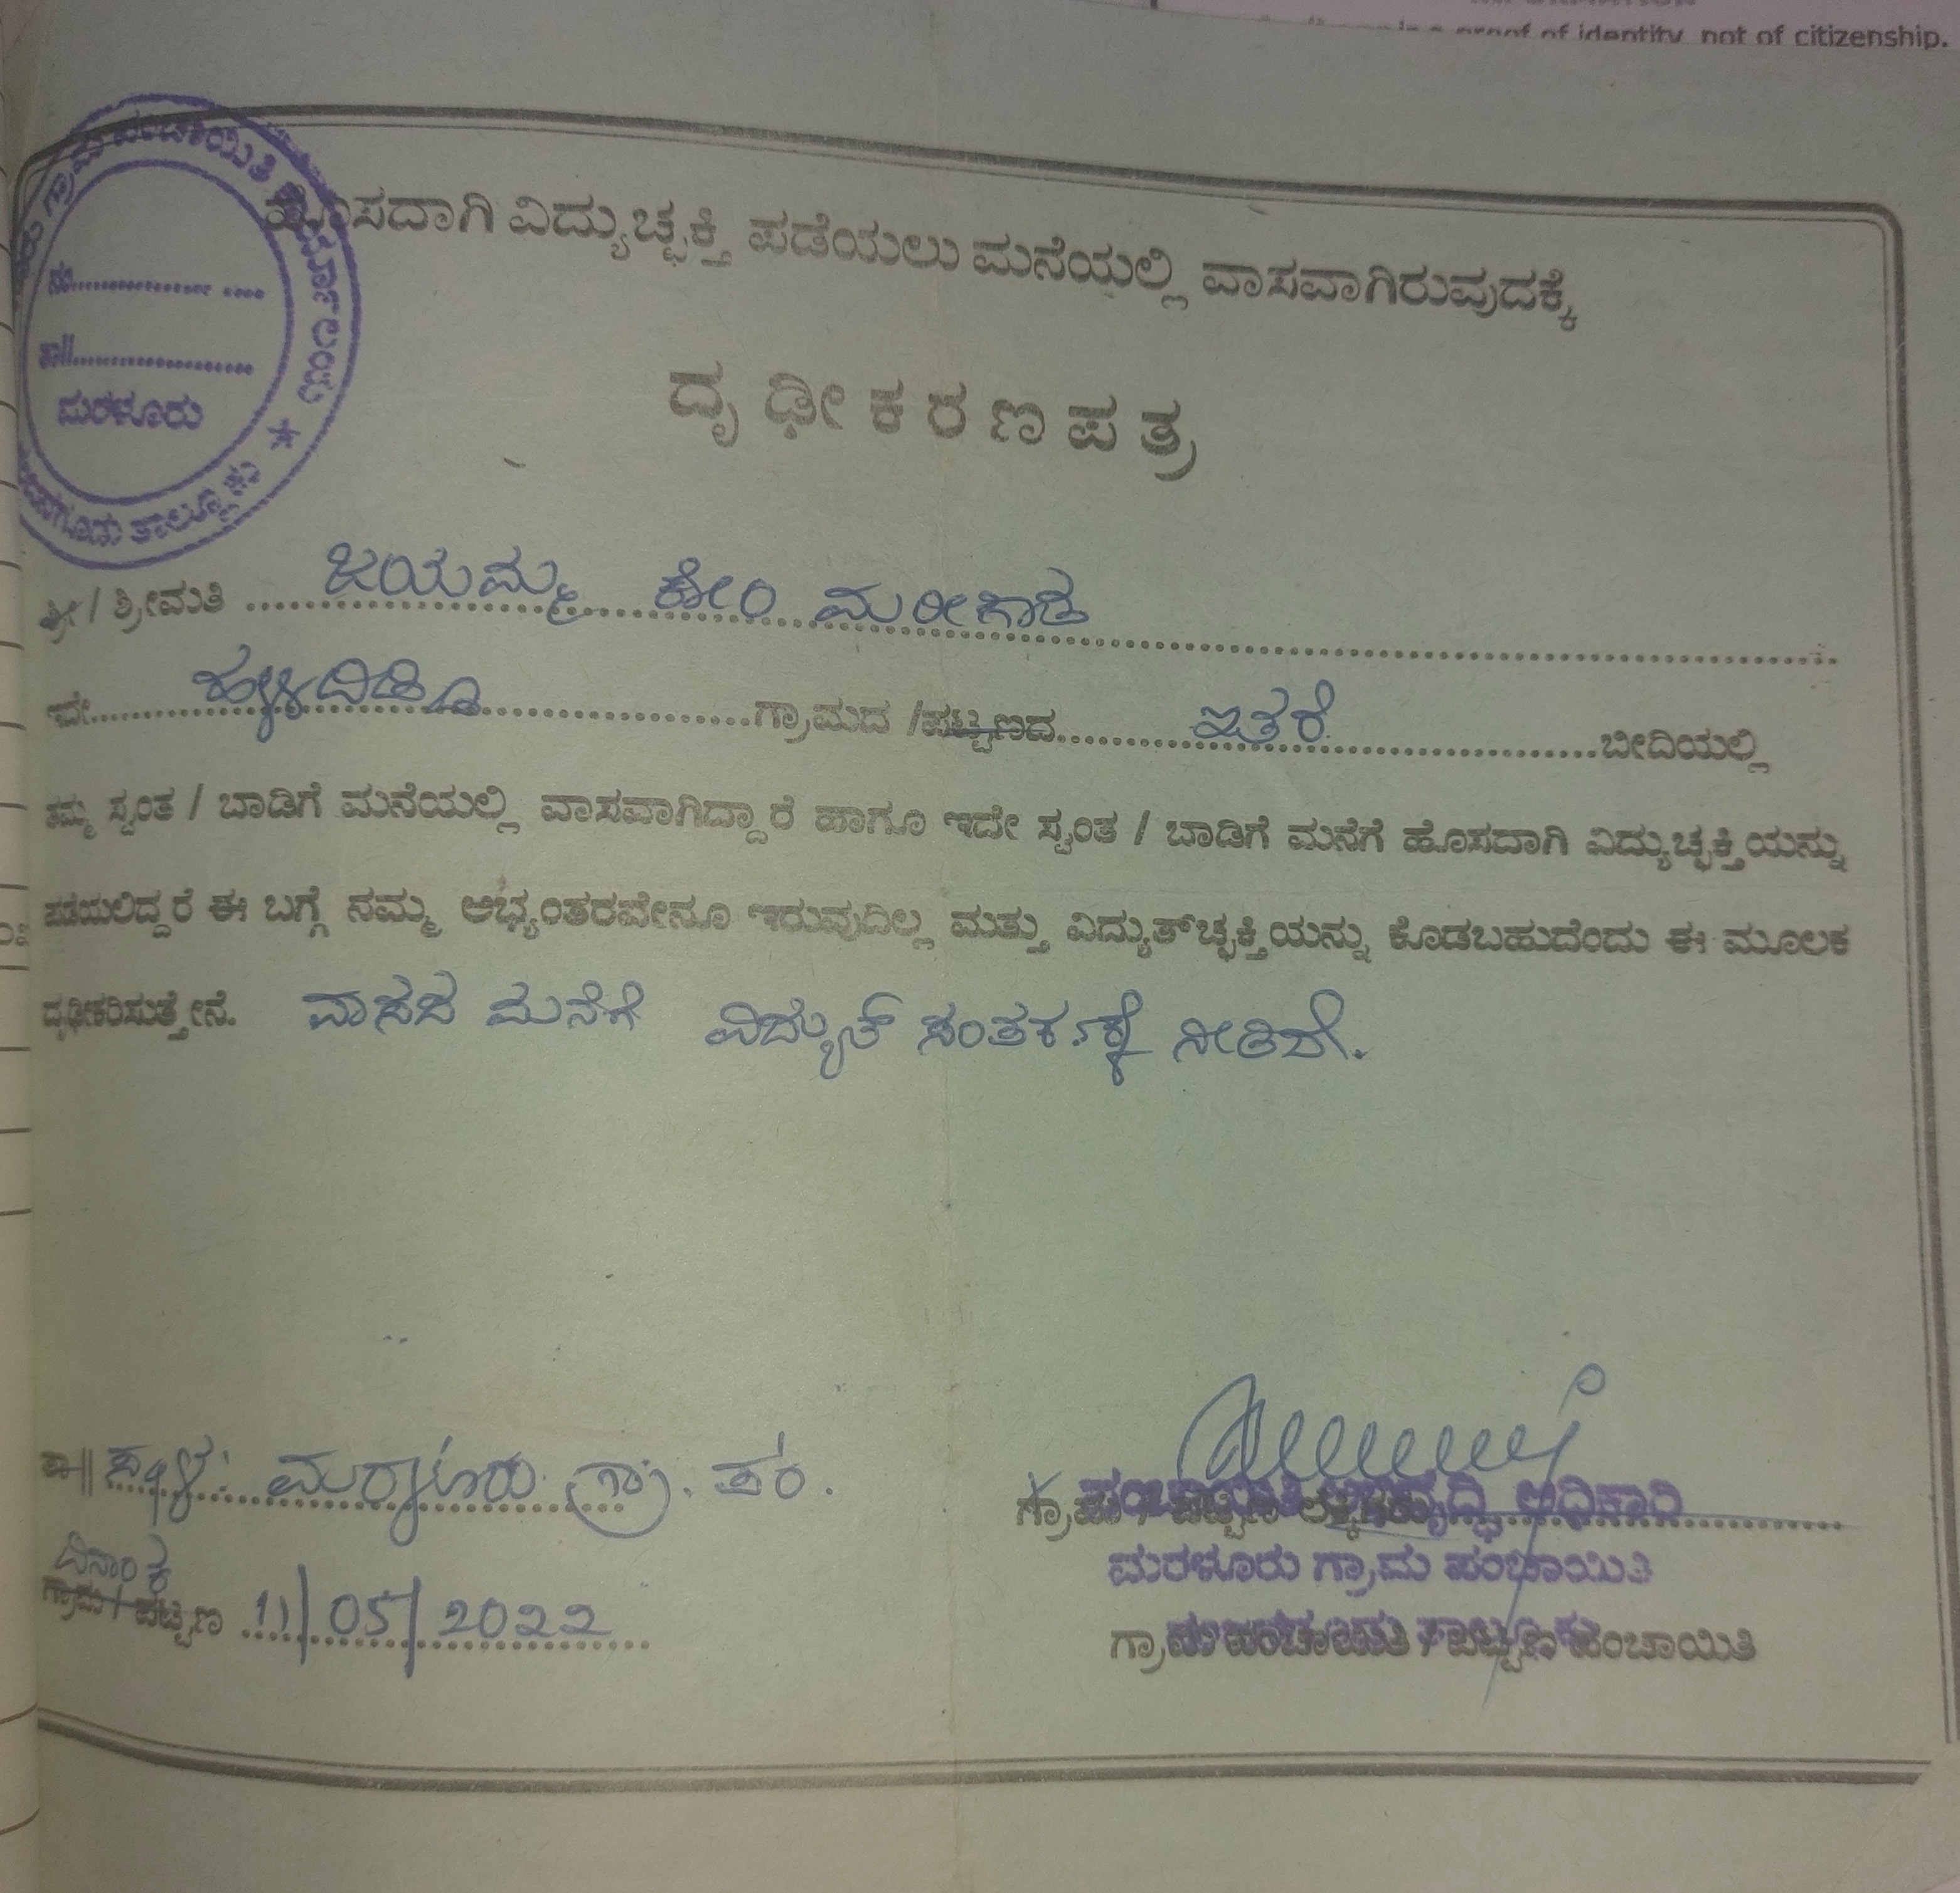 proof of identity, not of citizenship.
ಗ್ರಾಮ ಪಂಚಾಯಿತಿ ಕಾರ್ಯಾಲಯ ★
ತಾಲ್ಲೂಕು
ನಂ..................... ....
ತಾ||.....................
ಮರಳೂರು
ಹೊಸದಾಗಿ ವಿದ್ಯುಚ್ಛಕ್ತಿ ಪಡೆಯಲು ಮನೆಯಲ್ಲಿ ವಾಸವಾಗಿರುವುದಕ್ಕೆ
ದೃಢೀಕರಣಪತ್ರ
ಶ್ರೀ / ಶ್ರೀಮತಿ ಜಯಮ್ಮ ಕೋಂ ಮರೀಗೌಡ
ಇದೇ ಗ್ರಾಮದ / ಪಟ್ಟಣದ ಇತರೆ ಬೀದಿಯಲ್ಲಿ
ತಮ್ಮ ಸ್ವಂತ / ಬಾಡಿಗೆ ಮನೆಯಲ್ಲಿ ವಾಸವಾಗಿದ್ದಾರೆ ಹಾಗೂ ಇದೇ ಸ್ವಂತ / ಬಾಡಿಗೆ ಮನೆಗೆ ಹೊಸದಾಗಿ ವಿದ್ಯುಚ್ಛಕ್ತಿಯನ್ನು
ಪಡೆಯಲಿದ್ದರೆ ಈ ಬಗ್ಗೆ ನಮ್ಮ ಅಭ್ಯಂತರವೇನೂ ಇರುವುದಿಲ್ಲ ಮತ್ತು ವಿದ್ಯುತ್‌ಚ್ಛಕ್ತಿಯನ್ನು ಕೊಡಬಹುದೆಂದು ಈ ಮೂಲಕ
ದೃಢೀಕರಿಸುತ್ತೇನೆ. ವಾಸದ ಮನೆಗೆ ವಿದ್ಯುತ್ ಸಂಪರ್ಕಕ್ಕೆ ನೀಡಿದೆ.
ತಾ|| ಸ್ಥಳ: ಮರಳೂರು ಗ್ರಾ. ಪಂ.
ದಿನಾಂಕ
ಗ್ರಾಮ / ಪಟ್ಟಣ 11/05/2022
ಪಂಚಾಯಿತಿ ಅಭಿವೃದ್ಧಿ ಅಧಿಕಾರಿ
ಗ್ರಾಮ / ಪಟ್ಟಣ
ಮರಳೂರು ಗ್ರಾಮ ಪಂಚಾಯಿತಿ
ಗ್ರಾಮ ಪಂಚಾಯಿತಿ / ಪಟ್ಟಣ ಪಂಚಾಯಿತಿ